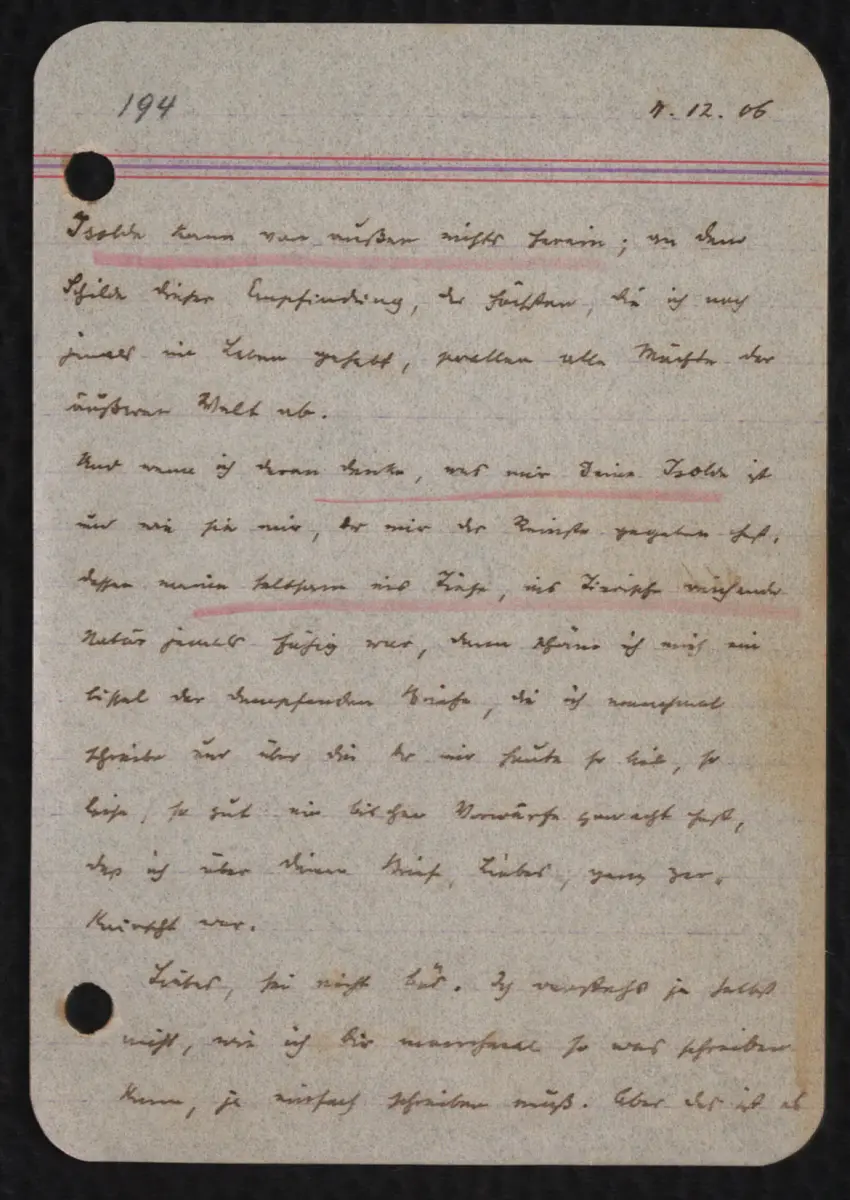 194
4. 12. 06
Isolde kann von außen nichts herein; an dem
Schilde dieser Empfindung, der höchsten, die ich noch
jemals im Leben gehabt, prallen alle Mächte der
äußeren Welt ab.
Und wenn ich daran denke, was mir Deine Isolde ist
und wie sie mir, Dir mir das Reinste gegeben hast,
dessen meine seltsam ins Tiefe, ins Tierische reichende
Natur jemals fähig war, dann schäme ich mich ein
bissel der dampfenden Briefe, die ich manchmal
schreibe und über die Du mir heute so lieb, so
leise, so gut ein bischen Vorwürfe gemacht hast,
daß ich über Deinen Brief, Liebes, ganz zer-
knirscht war.
Liebes, sei nicht bös. Ich versteh's ja selbst
nicht, wie ich Dir manchmal so was schreiben
kann, ja einfach schreiben muß. Aber das ist es